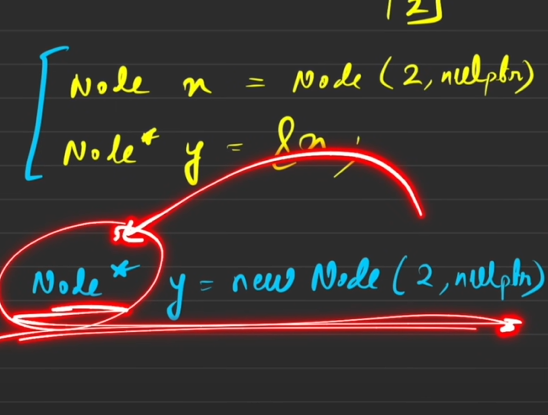 2
Node x = Node (2, nullptr)
Node* y = &x;
Node* y = new Node (2, nullptr)